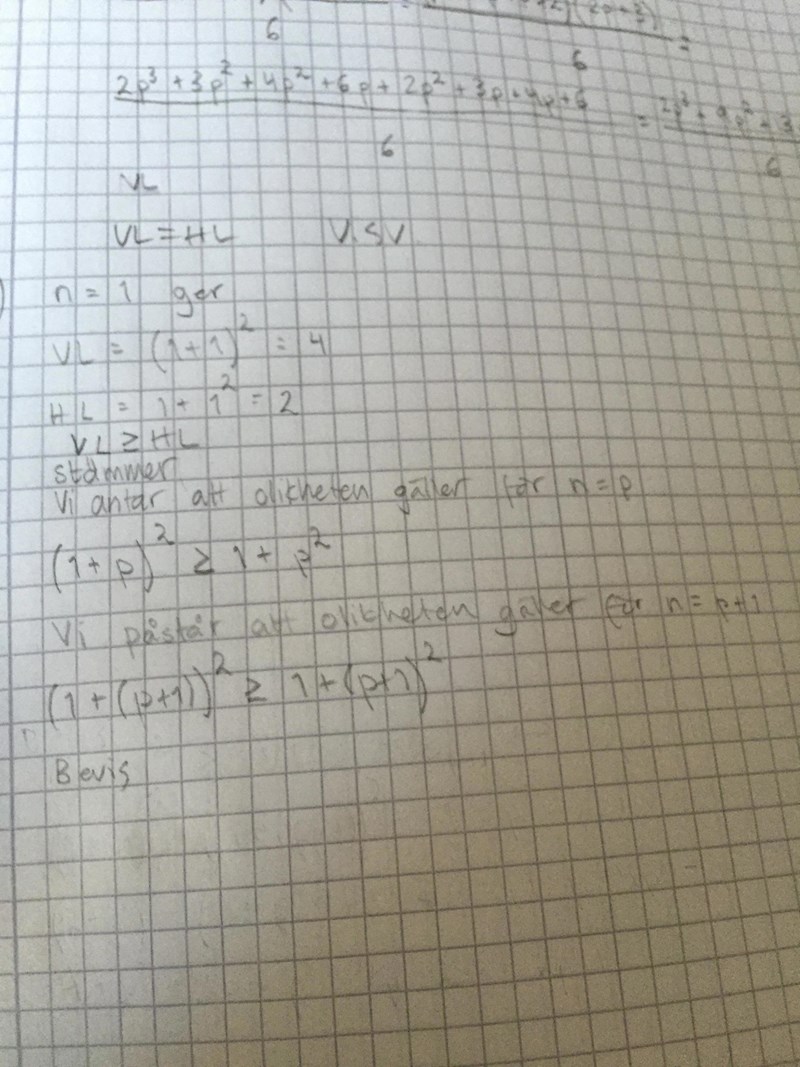 6
6
2p³ + 3p² + 4p² + 6p + 2p² + 3p + 4p + 6
6
= 2p³ + 9p² + 
6
VL
VL = HL V.S.V
n = 1 ger
VL = (1+1)² = 4
HL = 1 + 1² = 2
VL ≥ HL
stämmer
Vi antar att olikheten gäller för n = p
(1 + p)² ≥ 1 + p²
Vi påstår att olikheten gäller för n = p+1
(1 + (p+1))² ≥ 1 + (p+1)²
Bevis